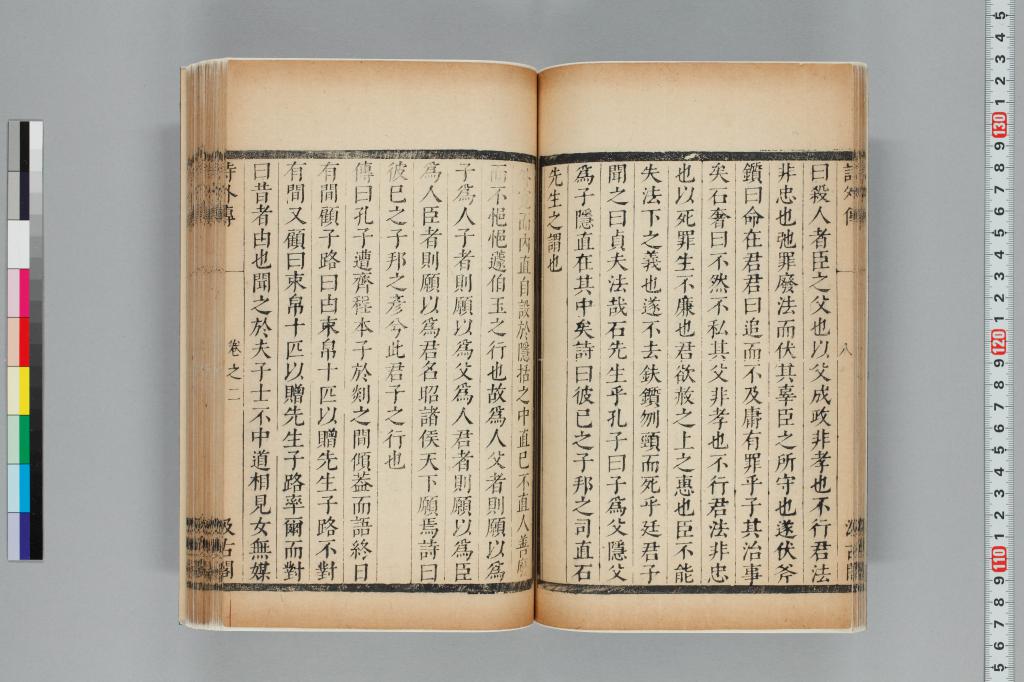 曰殺人者臣之父也以父成政非孝也不行君法
非忠也弛罪廢法而伏其辜臣之所守也遂伏斧
鑕曰命在君君曰追而不及庸有罪乎子其治事
矣石奢曰不然不私其父非孝也不行君法非忠
也以死罪生不廉也君欲赦之上之惠也臣不能
失法下之義也遂不去鈇鑕刎頸而死乎廷君子
聞之曰貞夫法哉石先生乎孔子曰子爲父隱父
爲子隱直在其中矣詩曰彼已之子邦之司直石
先生之謂也
而內直自設於隱括之中直已不直人善廢
而不悒悒蘧伯玉之行也故爲人父者則願以爲
子爲人子者則願以爲父爲人君者則願以爲臣
爲人臣者則願以爲君名昭諸侯天下願焉詩曰
彼已之子邦之彥兮此君子之行也
傳曰孔子遭齊程本子於剡之間傾葢而語終日
有間顧子路曰由束帛十匹以贈先生子路不對
有間又顧曰束帛十匹以贈先生子路率爾而對
曰昔者由也聞之於夫子士不中道相見女無媒
詩外傳
卷之二
汲古閣
八
110
120
130